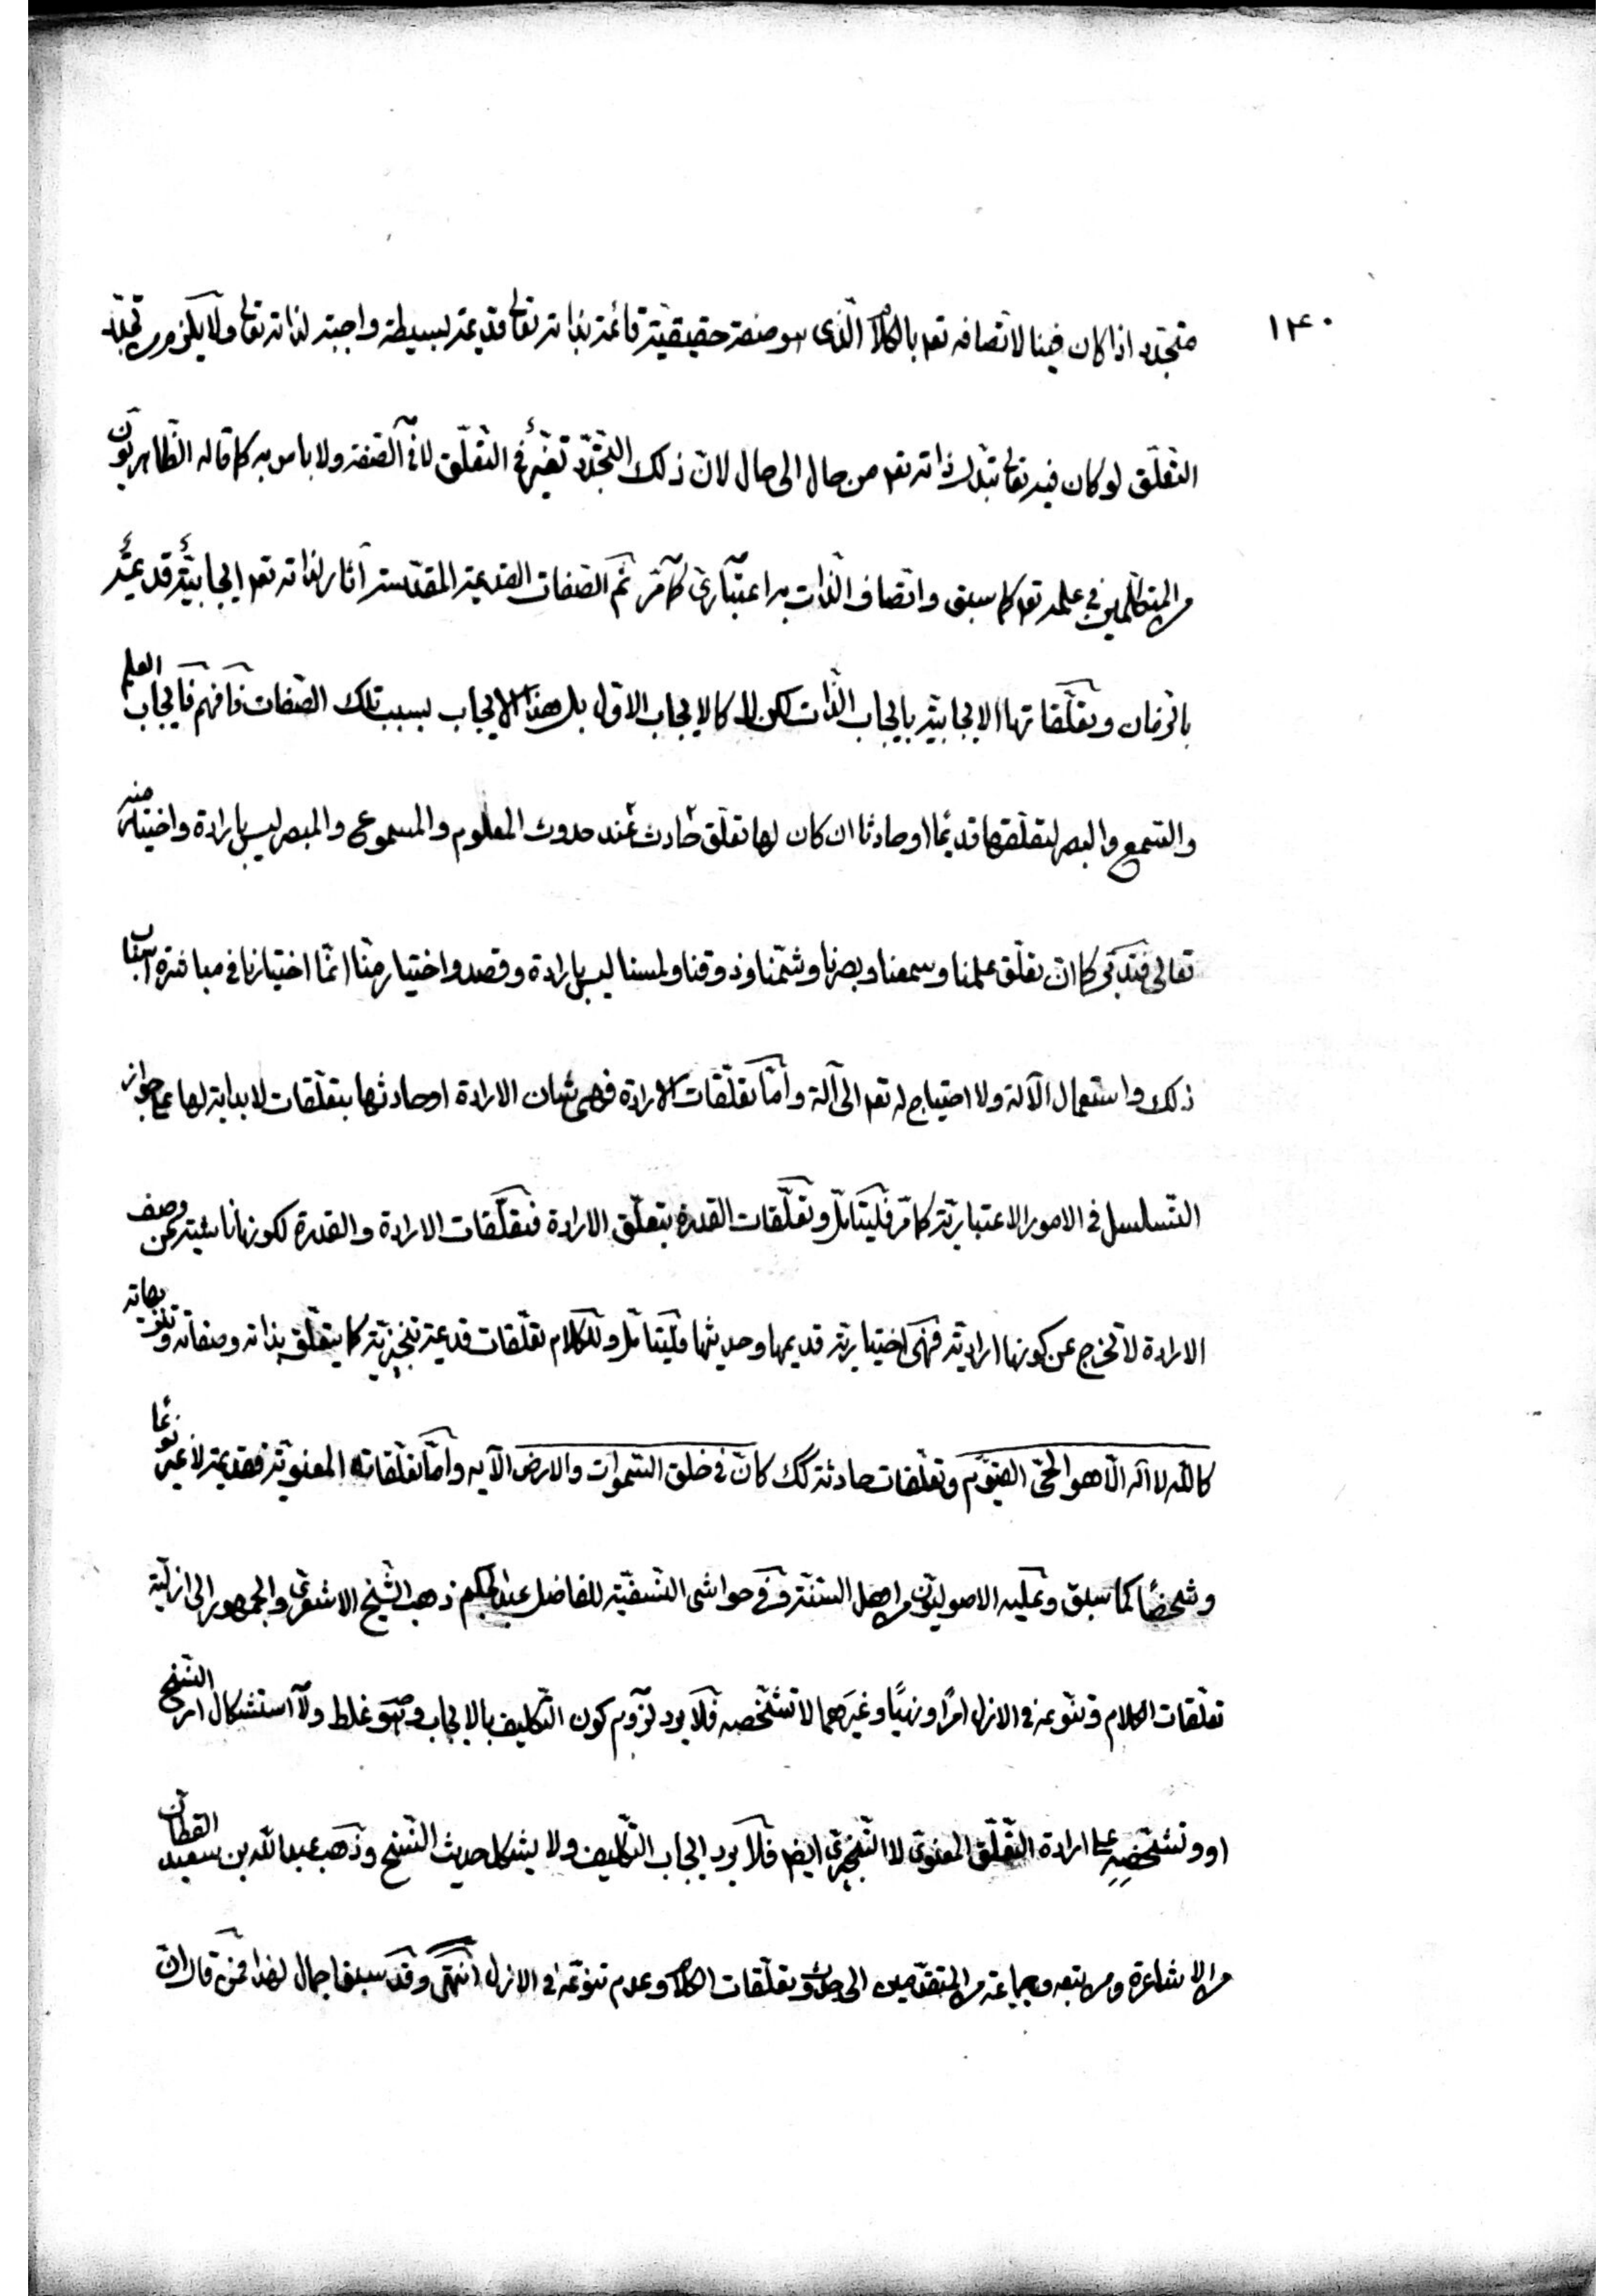 ١٣٠
متجدد اذا كان فينا لاتصافه تعم بالكلام الّذى هو صفة حقيقيّة قائمة بذاته تعالى قديمة بسيطة واجبة لذاته تعالى ولا يلزم من تجدّد
التعلّق لو كان فيه تعالى تبدّل ذاته تعم من حال الى حال لانّ ذلك التجدّد تغيّرٌ فى التعلّق لا فى الصّفة ولا باس به كما قاله الظاهريون
من المتكلّمين فى علمه تعم كما سبق واتصاف الذات به اعتبارىّ كما مرّ ثم الصّفات القديمة المقدّسة آثار لذاته تعم ايجابيّةٌ قديمةٌ
بالزمان وتعلّقاتها الايجابيّة بايجاب الذّات لكن لا كالايجاب الاوّل بل هذا الايجاب بسبب تلك الصّفات فافهم فايجاب العلم
والسّمع والبصر لتعلّقها قديمًا او حادثا ان كان لها تعلّق حادث عند حدوث المعلوم والمسموع والمبصر ليس بارادة واختيار منه
تعالى فتدبّر كما انّ تعلّق علمنا وسمعنا وبصرنا وشمّنا وذوقنا ولمسنا ليس بارادة وقصد واختيار منّا انّما اختيارنا فى مباشرة اسباب
ذلك واستعمال الآلة ولا احتياج له تعم الى آلة وامّا تعلّقات الارادة فهى بشان الارادة او حادثها بتعلّقات لا بداية لها على جواز
التّسلسل فى الامور الاعتباريّة كما مرّ فليتامّل وتعلّقات القدرة بتعلّق الارادة فتعلّقات الارادة والقدرة لكونها ناشئية عن وصف
الارادة لا تخرج عن كونها اراديّة فهى اختياريّة قديمها وحديثها فليتامّل وللكلام تعلّقات قديمة تنجيزيّة كما يتعلّق بذاته وصفاته وتنزيهاته
كاللّه لا اله الّا هو الحىّ القيّوم وتعلّقات حادثة كك كانّ فى خلق السّموات والارض الآيه وامّا تعلّقاته المعنويّة فقديمة لا غير نوعًا
وشخصًا كما سبق وعليه الاصوليّون من اهل السّنّة وفى حواشى النّسفيّة للفاضل عبد الحكيم ذهب الشّيخ الاشعرى والجمهور الى ازليّة
تعلّقات الكلام وتنوّعه فى الازل امرًا ونهيًا وغيرهما لا تشخّصه فلا يرد لزوم كون التّكليف بالايجاب وهو غلط ولا استشكال امر النّسخ
او وتشخّصه على ارادة التعلّق المعنوىّ لا التّنجيزى ايضم فلا يرد ايجاب التّكليف ولا يشكل حديث النّسخ وذهب عبد اللّه بن سعيد القطّان
من الاشاعرة ومن تبعه وجماعة من المتقدّمين الى حدوث تعلّقات الكلام وعدم تنوّعه فى الازل انتهى وقد سبق اجمال لهذا فمن قال انّ